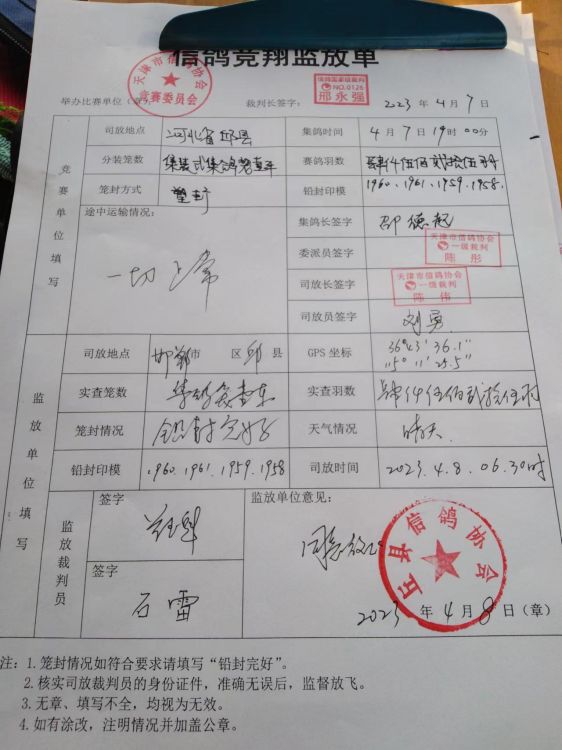 信鸽竞翔监放单
天津市信鸽协会
竞赛委员会
信鸽国家级裁判
NO.0126
邢永强
举办比赛单位（章）
裁判长签字：
2023年4月7日
竞赛单位填写
司放地点 河北省邱县 集鸽时间 4月7日19时00分
分装笼数 赛鸽羽数
笼封方式 塑封 铅封印模 1960、1961、1959、1958.
途中运输情况： 集鸽长签字 邵德起
一切正常
委派员签字 天津市信鸽协会 一级裁判 陈彤
司放长签字 天津市信鸽协会 一级裁判 陈伟
司放员签字 刘勇
监放单位填写
司放地点 邯郸市 区 邱县 GPS 坐标 36°43′36.1″
115°11′25.5″
实查笼数 实查羽数
笼封情况 铅封完好 天气情况 晴天
铅封印模 1960.1961.1959.1958 司放时间 2023.4.8.06.30时
监放裁判员
签字
签字
石雷
监放单位意见：
同意放飞
丘县信鸽协会
2023年4月8日（章）
注：1.笼封情况如符合要求请填写“铅封完好”。
2.核实司放裁判员的身份证件，准确无误后，监督放飞。
3.无章、填写不全，均视为无效。
4.如有涂改，注明情况并加盖公章。